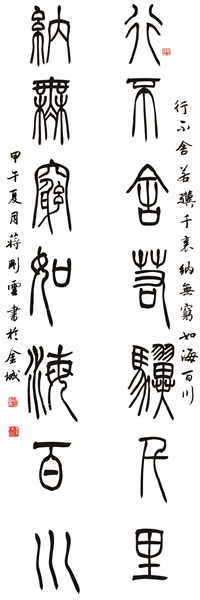 行不舍若驥千裏納無窮如海百川
行不舍若驥千里
納無窮如海百川
甲午夏月蔣剛雪書於金城